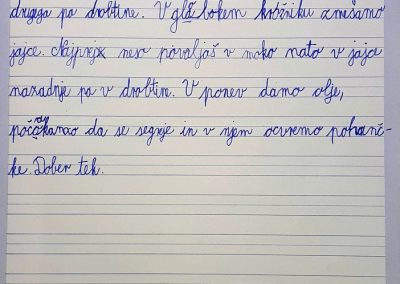 drugega pa drobtine. V globokem krožniku zmešamo
jajce. Najprej meso povaljaš v moko nato v jajce
nazadnje pa v drobtine. V ponev damo olje,
počakamo da se segreje in v njem ocvremo pohanč-
ke. Dober tek.